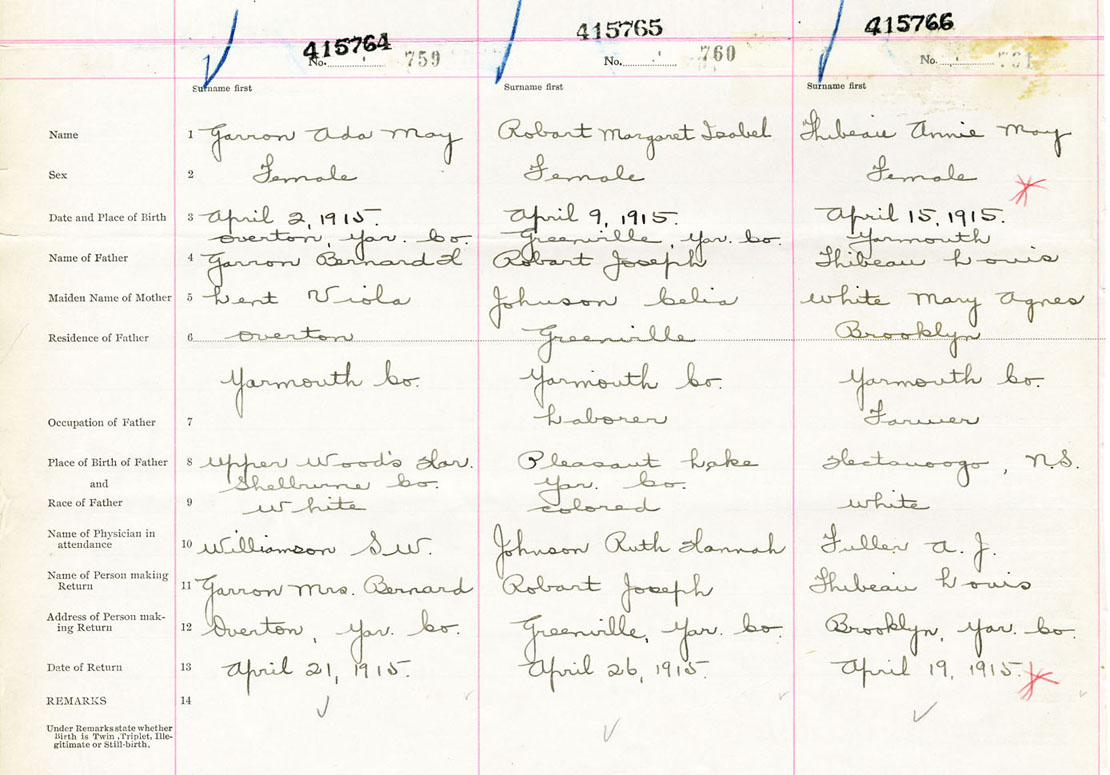 415764
415765
415766
No. 759
No. 760
No. 761
Surname first
Surname first
Surname first
Name 1 Garron Ada May
Robart Margaret Isabel
Thibeau Annie May
Sex 2 Female
Female
Female
Date and Place of Birth 3 April 2, 1915.
April 9, 1915.
April 15, 1915.
Overton, Yar. Co.
Greenville, Yar. Co.
Yarmouth
Name of Father 4 Garron Bernard H
Robart Joseph
Thibeau Louis
Maiden Name of Mother 5 Lent Viola
Johnson Celia
White Mary Agnes
Residence of Father 6 Overton
Greenville
Brooklyn
Yarmouth Co.
Yarmouth Co.
Yarmouth Co.
Occupation of Father 7
Laborer
Farmer
Place of Birth of Father 8 Upper Wood's Har.
Pleasant Lake
Hectanoogo, N.S.
and
Shelburne Co.
Yar. Co.
Race of Father 9 White
colored
white
Name of Physician in
attendance 10 Williamson S.W.
Johnson Ruth Hannah
Fuller A. J.
Name of Person making
Return 11 Garron Mrs. Bernard
Robart Joseph
Thibeau Louis
Address of Person mak-
ing Return 12 Overton, Yar. Co.
Greenville, Yar. Co.
Brooklyn, Yar. Co.
Date of Return 13 April 21, 1915.
April 26, 1915.
April 19, 1915.
REMARKS 14
Under Remarks state whether
Birth is Twin, Triplet, Ille-
gitimate or Still-birth.